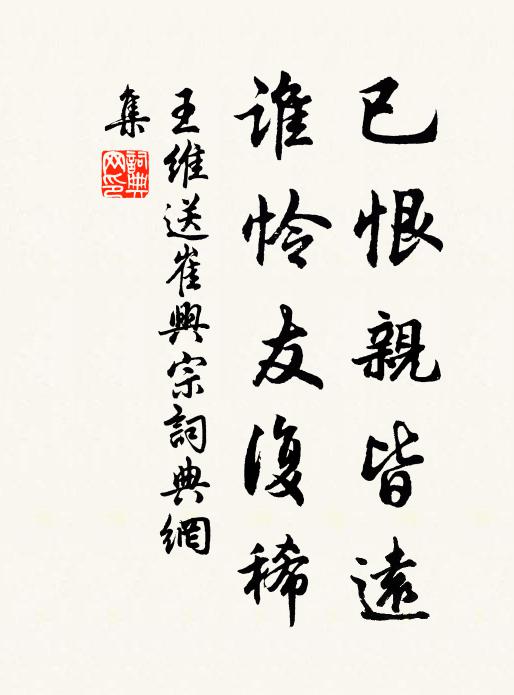 已恨親皆遠
谁怜友復稀
王維送崔興宗詞典網
集
詞典
网印